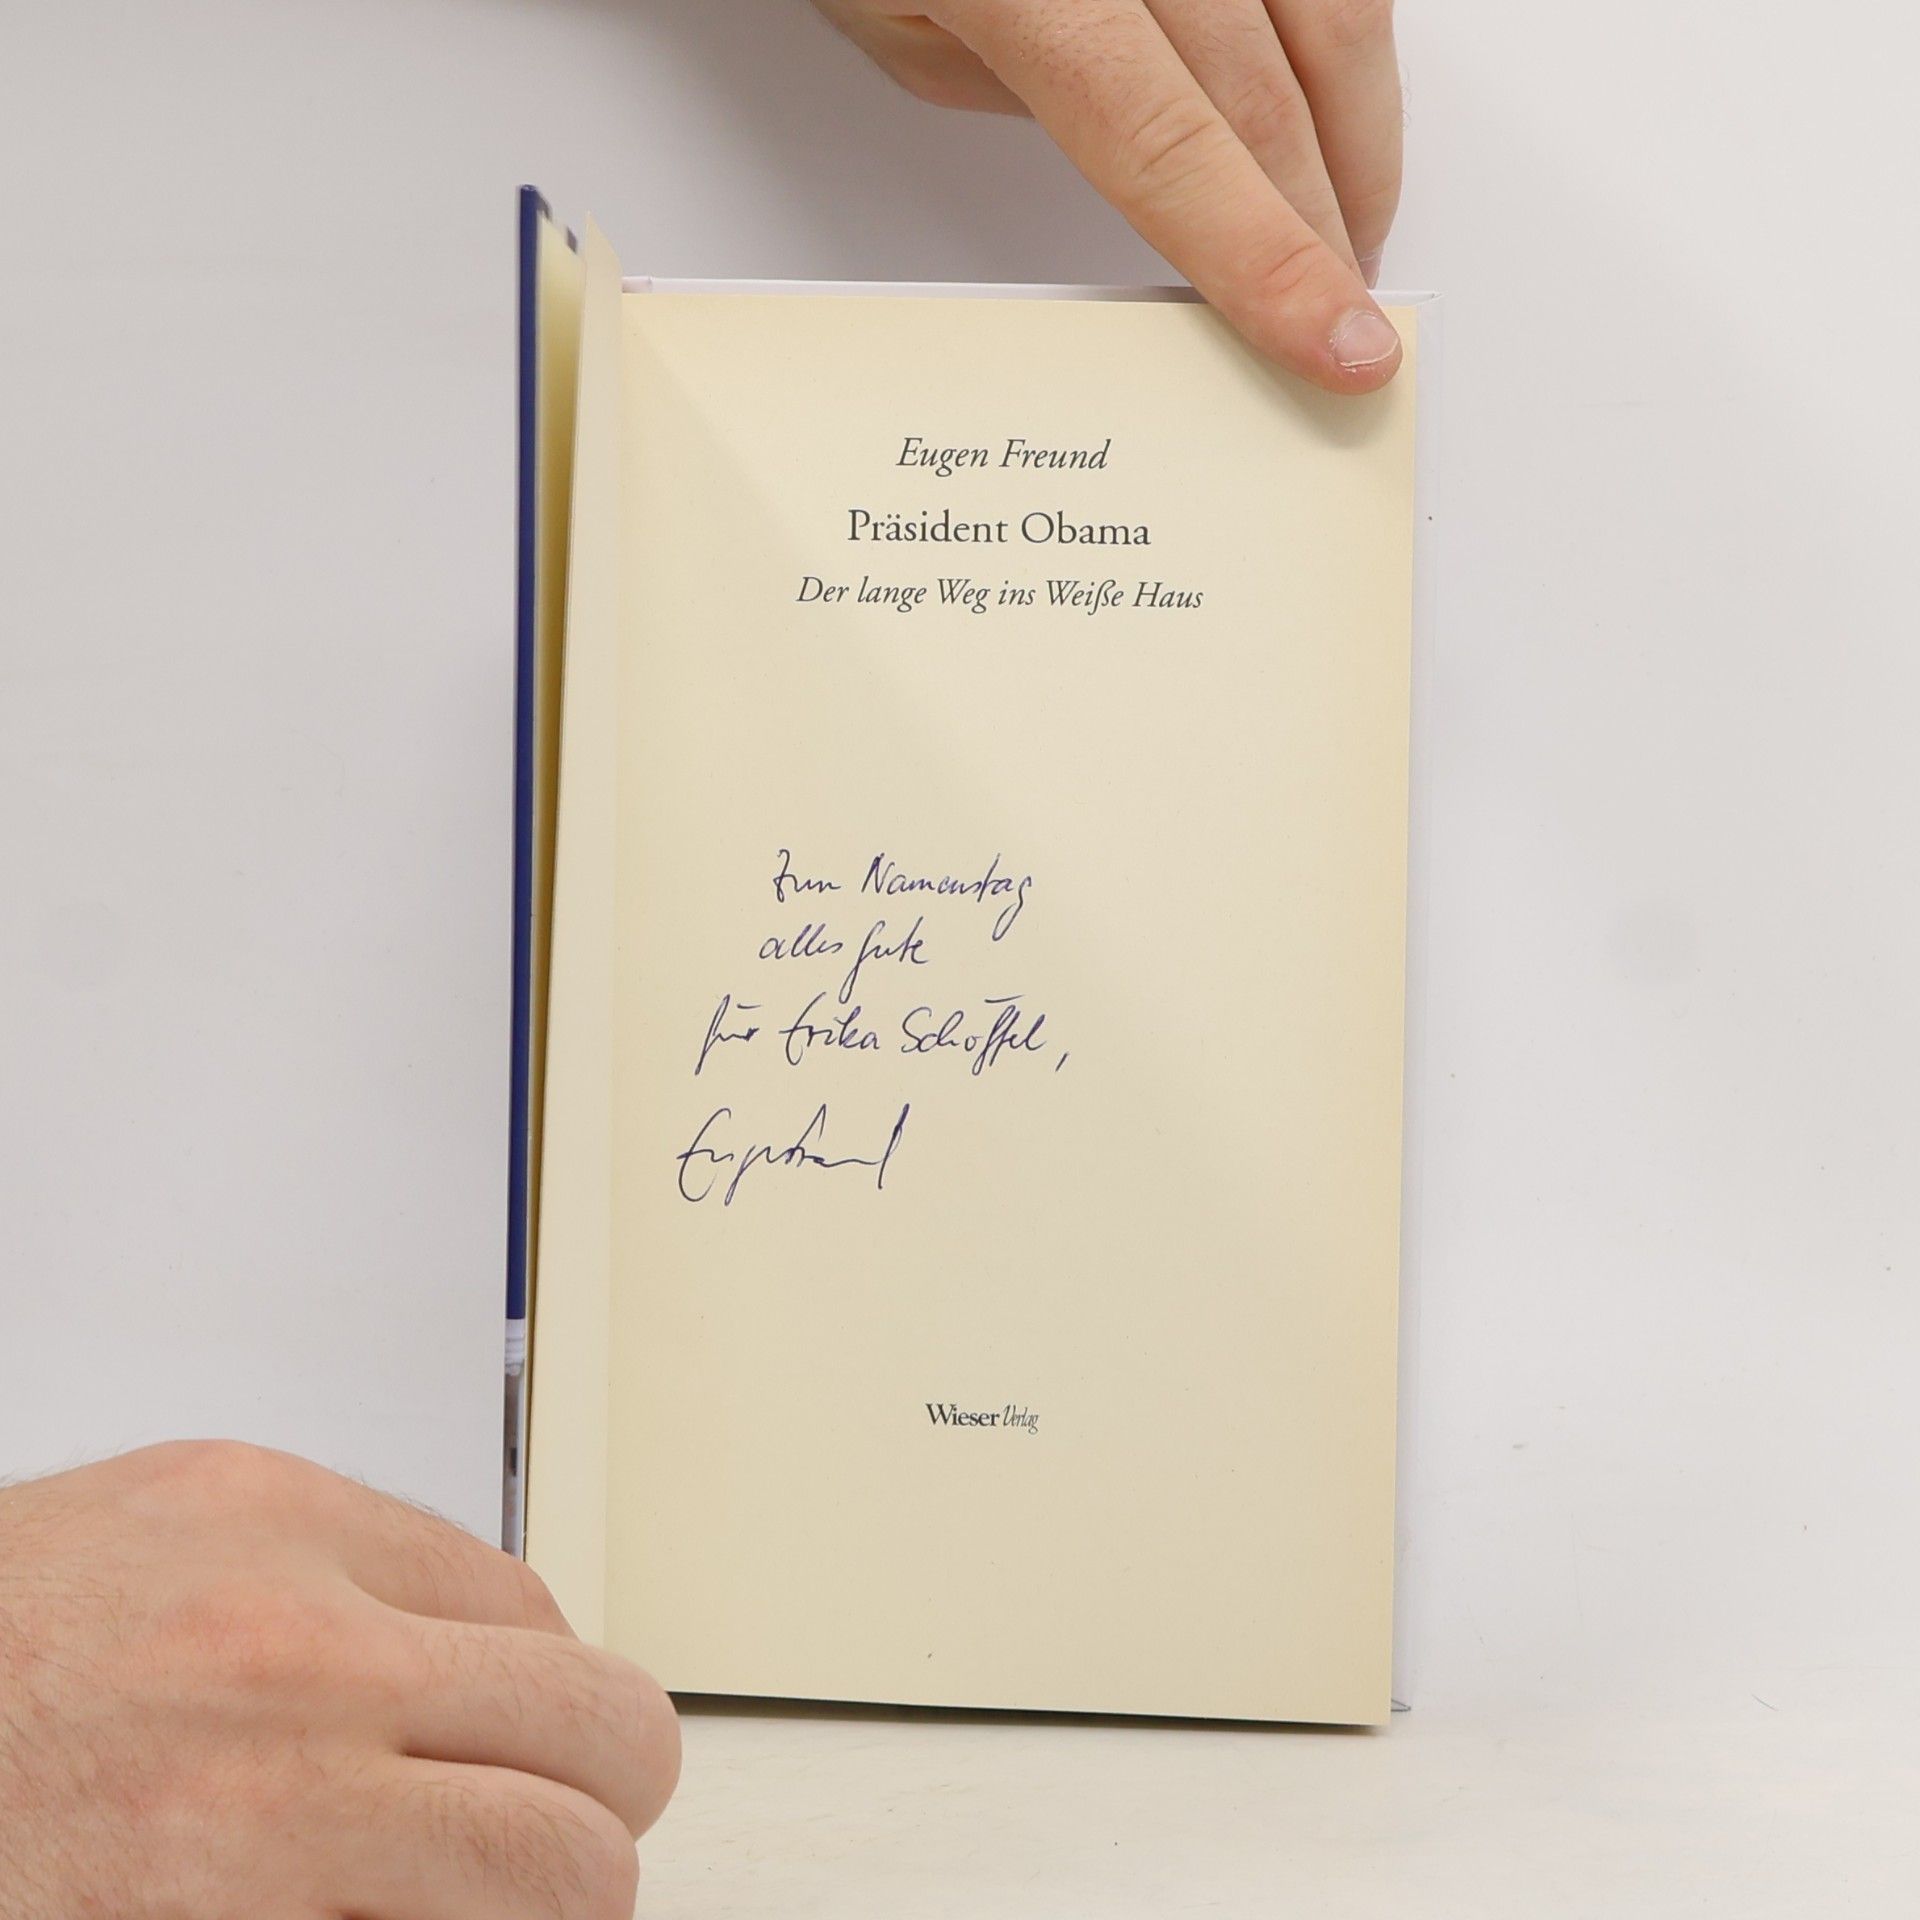 Eugen Freund
Präsident Obama
Der lange Weg ins Weiße Haus
Zum Namenstag
alles Gute
für Erika Schöffel,
Eugen Freund
Wieser Verlag